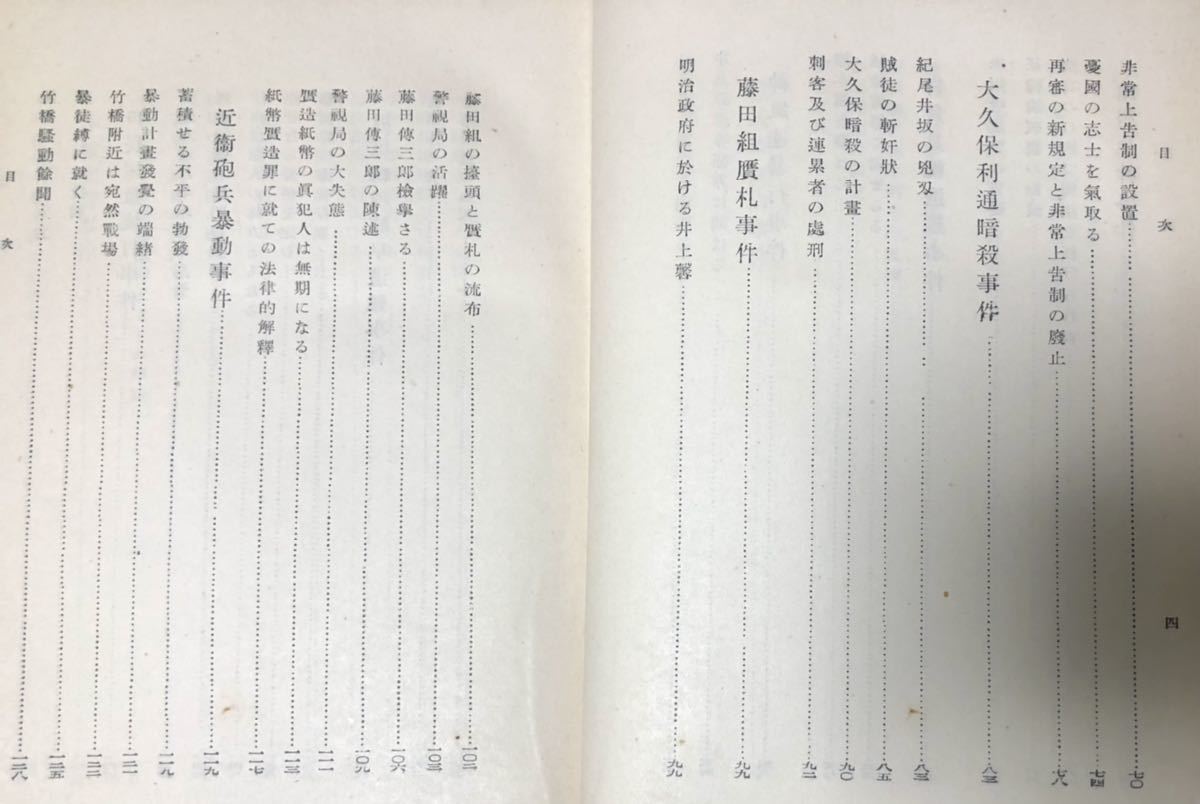 目次
四
非常上告制の設置……七〇
憂國の志士を氣取る……七四
再審の新規定と非常上告制の廢止……七八
大久保利通暗殺事件……八三
紀尾井坂の兇刄……八三
賊徒の斬奸狀……八五
大久保暗殺の計畫……九〇
刺客及び連累者の處刑……九二
藤田組贋札事件……九九
明治政府に於ける井上馨……九九
藤田組の擡頭と贋札の流布……一〇二
警視局の活躍……一〇三
藤田傳三郎檢擧さる……一〇六
藤田傳三郎の陳述……一〇九
警視局の大失態……一一一
贋造紙幣の眞犯人は無期になる……一一三
紙幣贋造罪に就ての法律的解釋……一一七
近衞砲兵暴動事件……一一九
蓄積せる不平の勃發……一一九
暴動計畫發覺の端緖……一二一
竹橋附近は宛然戰場……一二一
暴徒縛に就く……一二二
竹橋騷動餘聞……一二五
一二八
目次